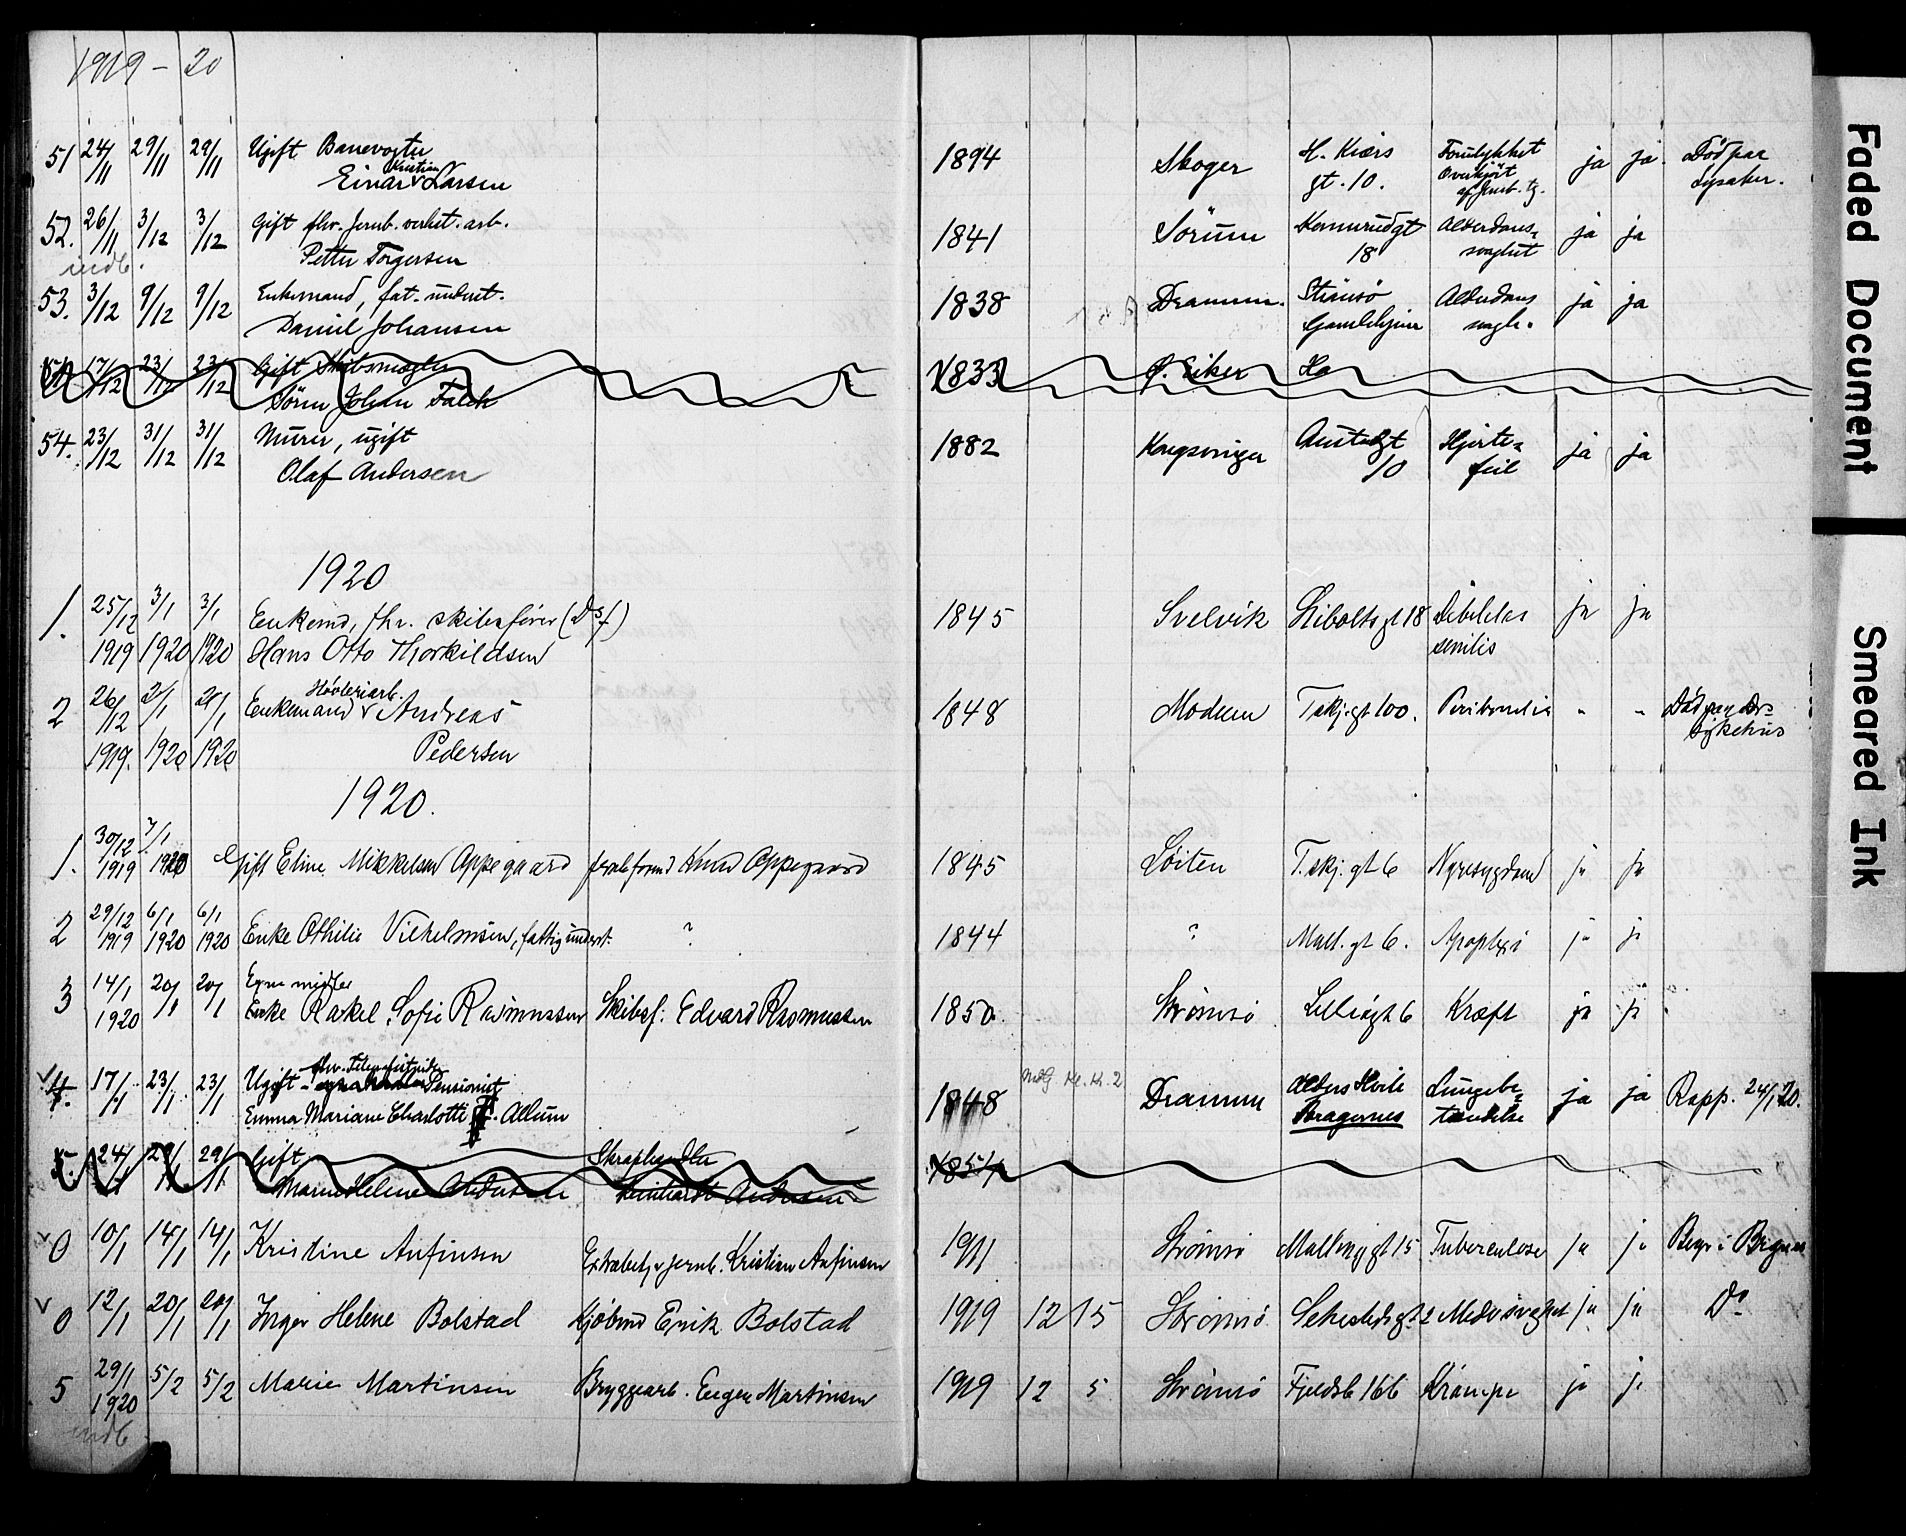 1919 – 20
51 24/11 29/11 29/11 Ugift Banevogter 1894 Skoger H. Kiærs gt. 10. Forulykket Overkjört af Jernb. tg. ja ja. Död paa Lysaker.
Einar Kristian Larsen
52. 26/11 3/12 3/12 Gift fhv. Jernb. verkst. arb. 1841 Sörum Konnerudgt 18 Alderdoms= svaghet ja ja
indb. Petter Torgersen
53. 3/12 9/12 9/12 Enkemand, fat. underst. 1838 Drammen. Strömsö Gamlehjem Alderdoms svagh. ja ja
Daniel Johansen
17/12 23/12 23/12 Gift Skibsmægler 1833 Ø. Eiker
Sören Johan Falch
54. 23/12 31/12 31/12 Murer, ugift 1882 Kongsvinger 10 Hjerte= feil ja ja
Olaf Andersen
1920
1. 25/12 3/1 3/1 Enkemd, fhr. skibsfører (Dsf) 1845 Svelvik Ciboltsgt 18 Debilitas senilis ja ja
1919 1920 1920 Hans Otto Thorkildsen
2 26/12 2/1 2/1 Enkemand Høvleriarb. Andreas 1848 Modum T skj. gt 100. " " Död paa Dr= sykehus
1919. 1920 1920 Pedersen
1920.
1. 30/12 1919 7/1 1920 Gift Eline Mikkelsen Oppegaard Knud Oppegaard 1845 Löiten T. skj. gt 6 Nyresygdom ja ja
2 29/12 1919 6/1 1920 6/1 1920 Enke Othilie Vilhelmsen, fattigunderst. ? 1844 ? Mall. gt 6. Apoplexi ja ja
3 14/1 1920 20/1 20/1 Egne midler
Enke Rakel Sofie Rasmussen Skibsf. Edvard Rasmussen 1850 Strömsö Kræft ja ja
4. 17/1 23/1 23/1 Ugift fhv. Pensionist 1848 Drammen Alders Hvile Bragernes Lungebe= tændelse ja ja Rapp. 24/1 20.
Emma Mariane Charlotte Allum
5. 24/1 29/1 29/1 Gift Skraphandler 1854
Marie Helene Andersen Reinhardt Andersen
0 10/1 14/1 14/1 Kristine Anfinsen Kristian Anfinsen 1911 Strömsö Mallinggt 15 Tuberculose ja ja
0 12/1 20/1 20/1 Inger Helene Bolstad Kjöbmd Erik Bolstad 1919 12 15 Strömsö Medf svaghet ja ja Do
5 29/1 1920 5/2 5/2 Marie Martinsen Bryggearb. Eugen Martinsen 1919 12 5 Strömsö Fjeldsb 166 Krampe ja ja
indb
Faded Document
Smeared Ink